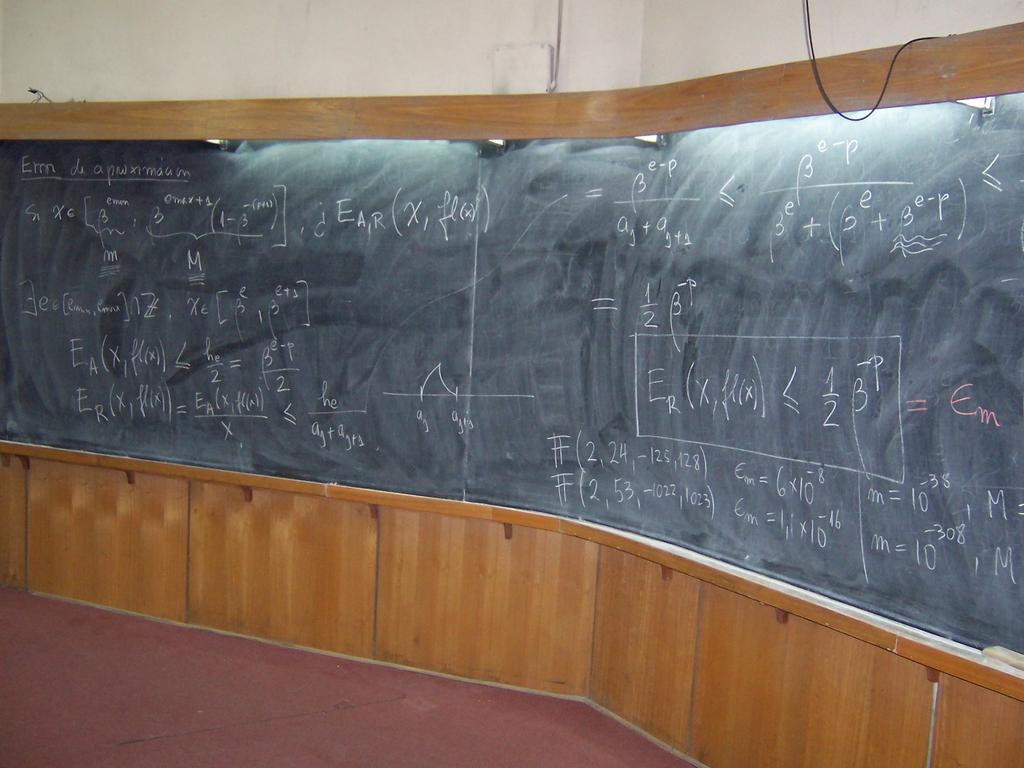 Error de aproximación
Si x ∈ [β^emin, β^(emax+1) (1-β^-(p+1))], ¿ E_A,R (x, fl(x))
m M
∃ e ∈ [emin, emax] ∩ ℤ, x ∈ [β^e, β^(e+1)]
E_A (x, fl(x)) ≤ h_e/2 = β^(e-p)/2
E_R (x, fl(x)) = E_A (x, fl(x))/x ≤ h_e/(a_j + a_j+1)
a_j a_j+1
= β^(e-p)/(a_j + a_j+1) ≤ β^(e-p)/(β^e + (β^e + β^(e-p))) ≤
= 1/2 β^-p
E_R (x, fl(x)) ≤ 1/2 β^-p = ϵ_m
𝔽 (2, 24, -125, 128) ϵ_m = 6×10^-8 m = 10^-38, M =
𝔽 (2, 53, -1022, 1023) ϵ_m = 1,1×10^-16 m = 10^-308, M